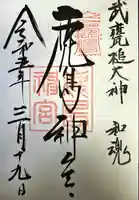 武甕槌大神　和魂
鹿島神宮
令和五年三月十九日